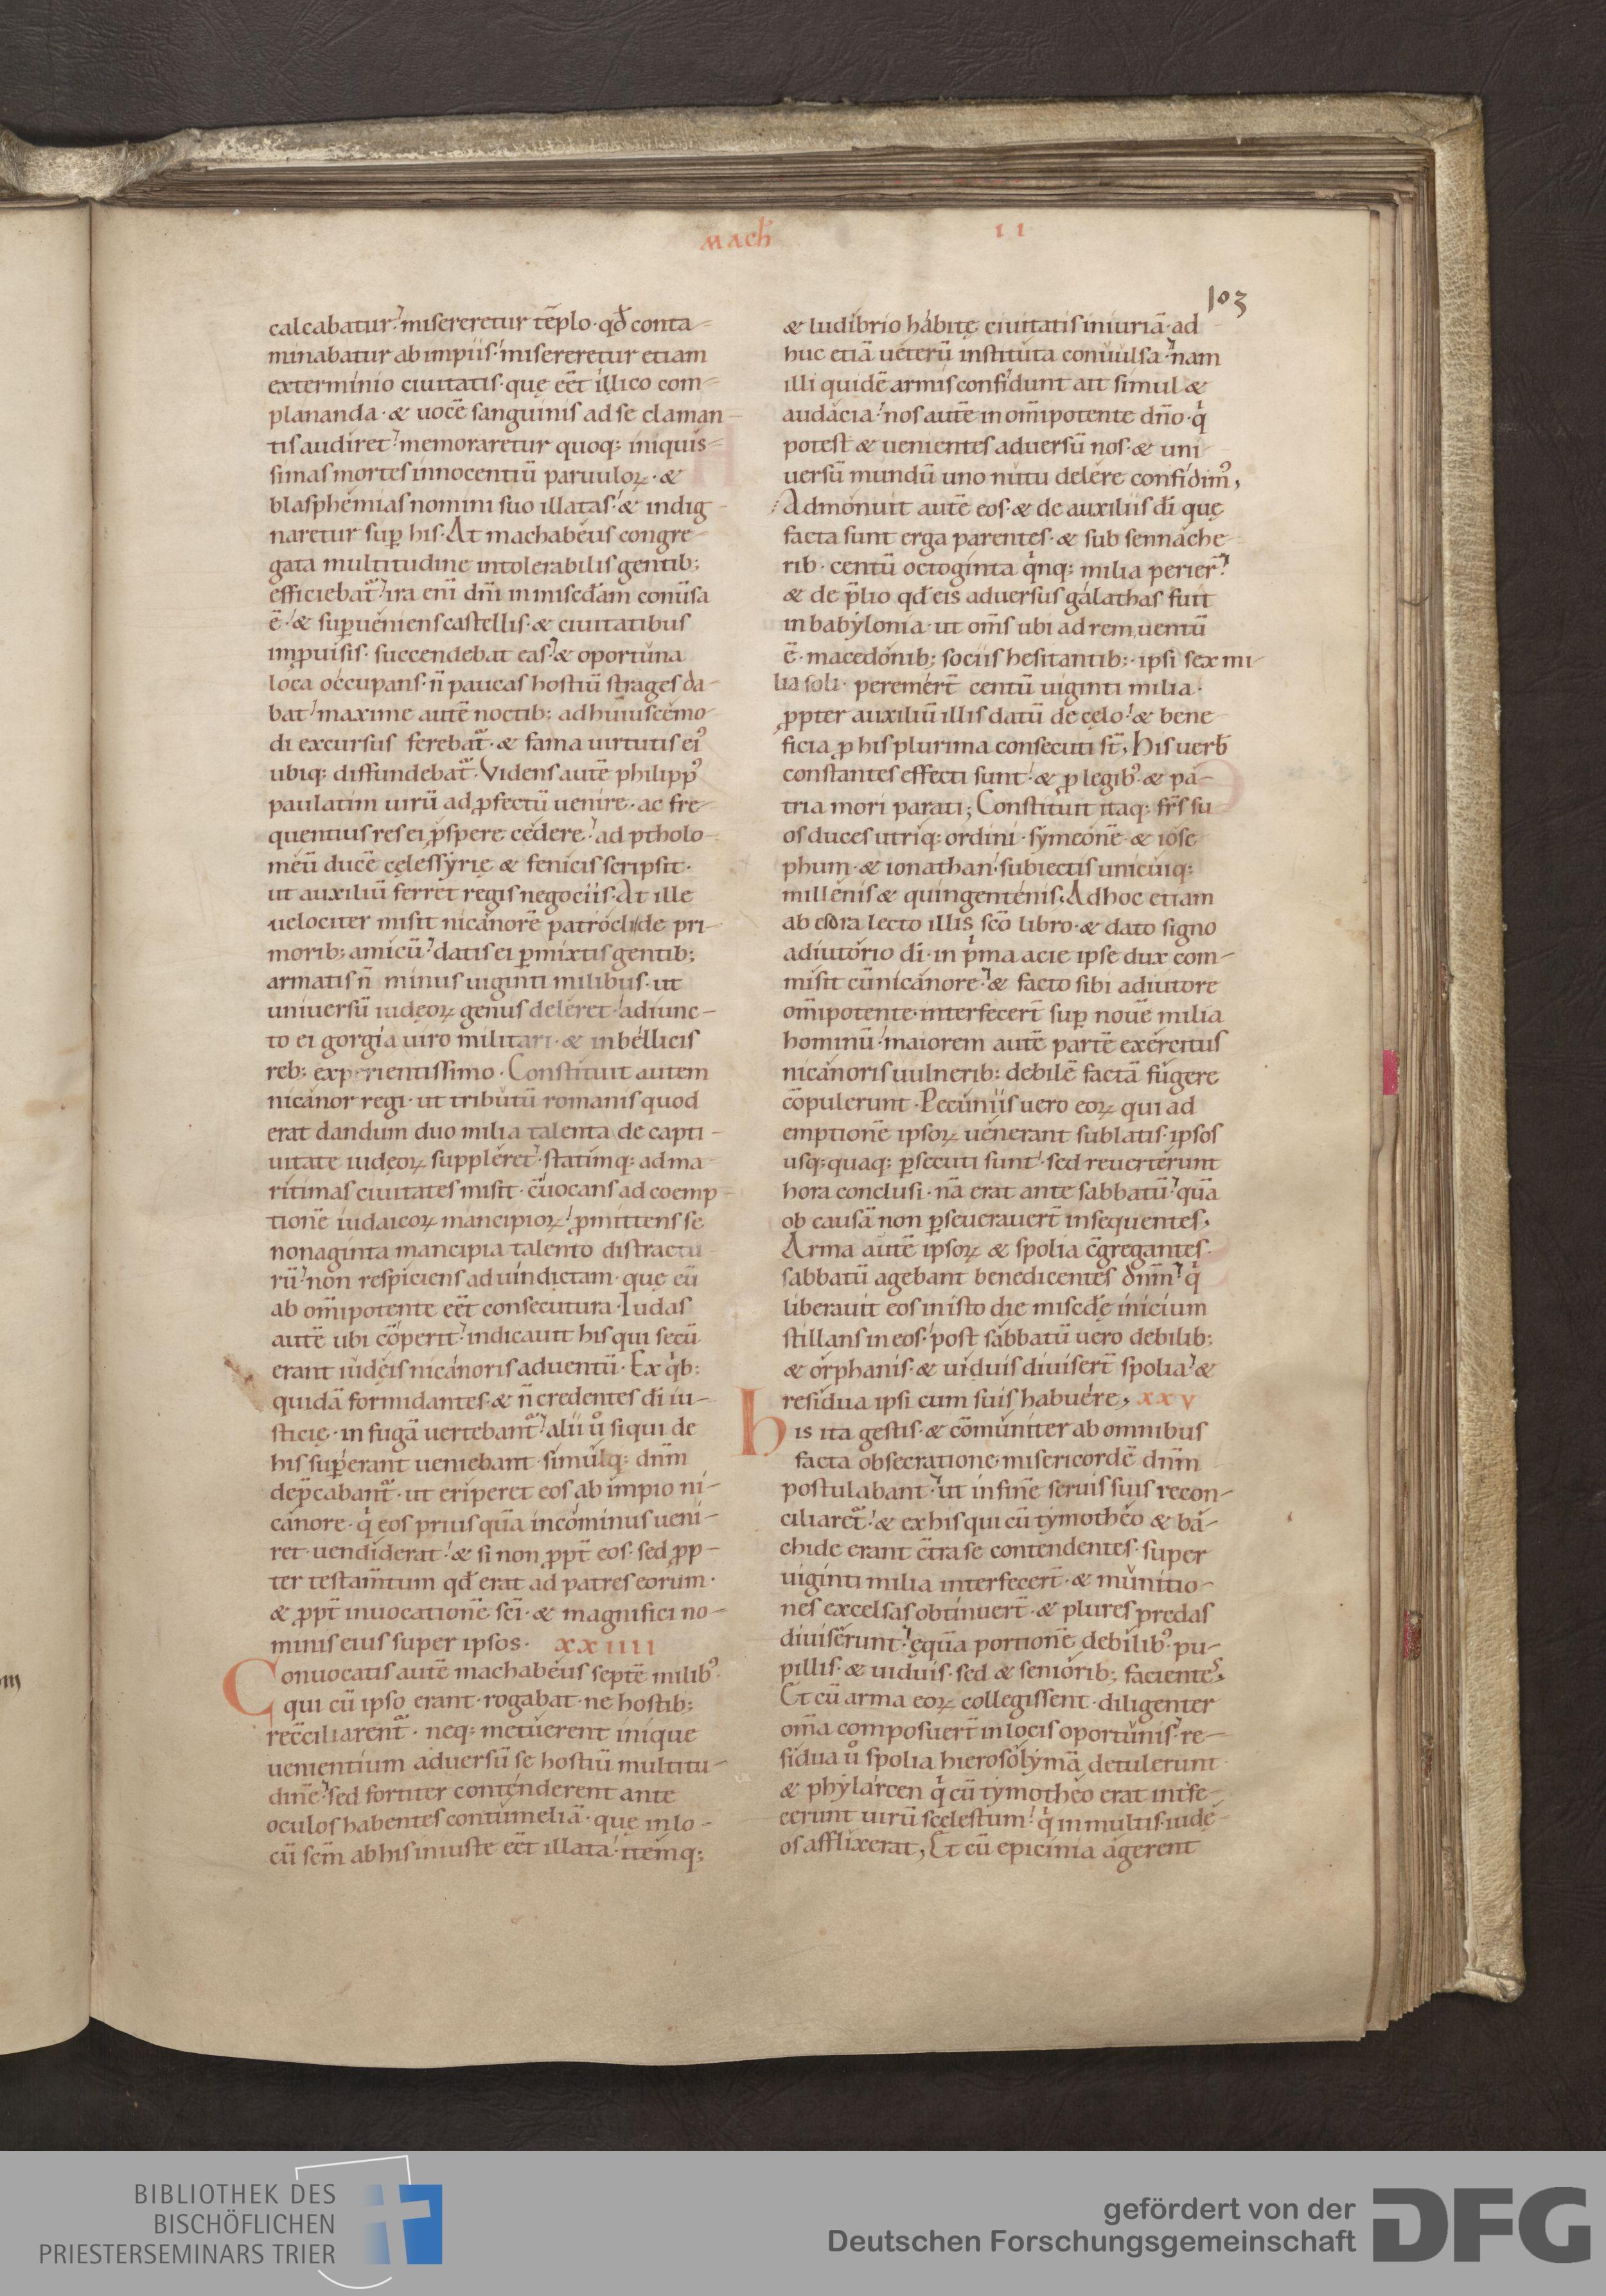 mach̄ II
103
calcabatur. misereretur tēplo· qđ conta-
minabatur ab impiis· misereretur etiam
exterminio ciuitatis· quę eēt illico com-
plananda· & uocē sanguinis ad se claman-
tis audiret· memoraretur quoq; iniquis-
simas mortes innocentiū paruuloꝝ· &
blasphemias nomini suo illatas· & indig-
naretur suꝑ his· At machabeus congre-
gata multitudine intolerabilis gentib;
efficiebat᷑· ira eni᷑ dn̄i in miscđam conu̅sa
ē· & suꝑueniens castellis· & ciuitatibus
imꝓuisis· succendebat eas· & oportuna
loca occupans· n̄ paucas hostiū strages da-
bat· maxime autē noctib; ad huiuscemo-
di excursus ferebat᷑· & fama uirtutis ei᷒
ubiq; diffundebat᷑· Videns autē philipp᷒
paulatim uirū ad ꝓfectū uenire· ac fre-
quentius res ei ꝓspere cedere· ad ptholo-
meū ducē cęlessyrię & fenicis scripsit·
ut auxiliū ferret regis negociis· At ille
uelociter misit nicanorē patrocli de pri-
morib; amicū· datis ei ꝑmixtis gentib;
armatis n̄ minus uiginti milibus· ut
uniuersū iudęoꝝ genus deleret· adiunc-
to ei gorgia uiro militari· & in bellicis
reb; experientissimo· Constituit autem
nicanor regi· ut tributū romanis quod
erat dandum duo milia talenta de capti-
uitate iudęoꝝ suppleret· statimq; ad ma-
ritimas ciuitates misit· c̄uocans ad coemp-
tionē iudaicoꝝ mancipioꝝ· ꝓmittens se
nonaginta mancipia talento distractu-
rū· non respiciens ad uindictam· quę eū
ab om̄ipotente eēt consecutura· Iudas
autē ubi cōperit· indicauit his qui secū
erant iudęis nicanoris aduentū· Ex qͥb;
quidā formidantes· & n̄ credentes di᷑ iu-
sticię· in fugā uertebant᷑· alii uͦ siqui de
his suꝑerant ueniebant· simulq; dnm̄
dep̄cabant᷑· ut eriperet eos ab impio ni-
canore· qͥ eos prius quā incominus ueni-
ret· uendiderat· & si non ꝓpt̄ eos· sed ꝓp-
ter testam̄tum qđ erat ad patres eorum·
& ꝓpt̄ inuocationē sc̄i· & magnifici no-
minis eius super ipsos· XXIIII
Conuocatis autē machabeus septē milib᷒
qui cū ipso erant· rogabat· ne hostib;
rec̄ciliarent᷑· neq; metuerent inique
uenientium aduersū se hostiū multitu-
dinē· sed fortiter contenderent ante
oculos habentes contumeliā· quę in lo-
cū scm̄ ab his iniuste eēt illata· itemq;
& ludibrio habitę ciuitatis iniuriā· ad
huc etiā ueterū instituta conuulsa· nam
illi quidē armis confidunt ait simul &
audacia· nos autē in om̄ipotente dn̄o· qͥ
potest & uenientes aduersū nos· & uni-
uersū mundū uno nutu delere confidim᷒,
Admonuit autē eos· & de auxiliis di᷑ quę
facta sunt erga parentes· & sub sennache-
rib· centū octoginta qͥnq; milia perier̄·
& de p̄lio qđ eis aduersus galathas fuit
in babylonia· ut om̄s ubi ad rem uentū
ē· macedonib; sociis hesitantib; ipsi sex mi-
lia soli· peremer̄t centū uiginti milia·
ꝓpter auxiliū illis datū de cęlo· & bene-
ficia ꝓ his plurima consecuti st̄, His uerb̄
constantes effecti sunt· & ꝓ legib᷒ & pa-
tria mori parati; Constituit itaq; fr̄s su-
os duces utriq; ordini· symeonē & iose-
phum· & ionathan· subiectis unicuiq;
millenis & quingentenis· Adhoc etiam
ab esdra lecto illis sc̄o libro· & dato signo
adiutorio di᷑· in pͥma acie ipse dux com-
misit cū nicanore· & facto sibi adiutore
om̄ipotente· interfecer̄t suꝑ nouē milia
hominū· maiorem autē partē exercitus
nicanoris uulnerib; debilē factā fugere
cōpulerunt· Pecuniis uero eoꝝ qui ad
emptionē ipsoꝝ uenerant sublatis· ipsos
usq; quaq; ꝑsecuti sunt· sed reuerterunt
hora conclusi· nā erat ante sabbatū· quā
ob causā non ꝑseuerauer̄t insequentes,
Arma autē ipsoꝝ & spolia c̄gregantes·
sabbatū agebant benedicentes dnm̄· qͥ
liberauit eos in isto die miscđę inicium
stillans in eos· post sabbatū uero debilib;
& orphanis· & uiduis diuiser̄t spolia· &
residua ipsi cum suis habuere, XXV
His ita gestis· & cōmuniter ab omnibus
facta obsecratione· misericordē dnm̄
postulabant· ut in finē seruis suis recon-
ciliaret᷑· & ex his qui cū tymotheo & ba-
chide erant c̄tra se contendentes· super
uiginti milia interfecer̄t· & munitio-
nes excelsas obtinuer̄t· & plures predas
diuiserunt· ęquā portionē debilib᷒· pu-
pillis· & uiduis· sed & seniorib; facientes,
Et cū arma eoꝝ collegissent· diligenter
om̄a composuer̄t in locis oportunis· re-
sidua uͦ spolia hierosolymā detulerunt·
& phylarcen qͥ cū tymotheo erat int̄fe-
cerunt uirū scelestum· qͥ in multis iudę-
os afflixerat, Et cū epicinia agerent
BIBLIOTHEK DES
BISCHÖFLICHEN
PRIESTERSEMINARS TRIER
gefördert von der
Deutschen Forschungsgemeinschaft
DFG